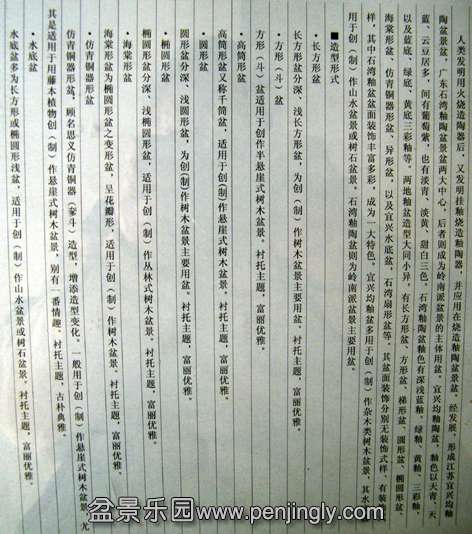 人类发明用火烧造陶器后,又发明挂釉烧造釉陶器,并应用在烧造釉陶盆景盆。经发展,形成江苏宜兴均釉
陶盆景盆、广东石湾釉陶盆景盆两大中心。后者则成为岭南派盆景的主体用盆。宜兴均釉陶盆,釉色以天青、天
蓝、云豆居多,间有葡萄紫,也有淡青、淡黄、甜白三色。石湾釉陶盆釉色有深浅蓝釉、绿釉、黄釉、三彩釉,
以及蓝底、绿底、黄底三彩釉等。两地釉盆造型大同小异,有长方形盆、方形盆、梯形盆、圆形盆、椭圆形盆、
海棠形盆、仿青铜器形盆、异形盆,以及宜兴水底盆,石湾扇形盆等。其盆面装饰分别无装饰式样,有装
样,其中石湾釉盆盆面装饰丰富多彩,成为一大特色。宜兴均釉盆多用于创(制)作杂木类树木盆景,其水
用于创(制)作山水盆景或树石盆景。石湾釉陶盆则为岭南派盆景主要用盆。
■造型形式
·长方形盆
长方形盆分深、浅长方形盆,为创(制)作树木盆景主要用盆。衬托主题,富丽优雅。
·方形(斗)盆
方形(斗)盆适用于创作半悬崖式树木盆景。衬托主题,富丽优雅。
·高筒形盆
高筒形盆又称千筒盆,适用于创(制)作悬崖式树木盆景。衬托主题,富丽优雅。
·圆形盆
圆形盆分深、浅圆形盆,为创(制)作树木盆景主要用盆。衬托主题,富丽优雅。
·椭圆形盆
椭圆形盆分深、浅椭圆形盆,适用于创(制)作丛林式树木盆景。衬托主题,富丽优雅。
·海棠形盆
海棠形盆为椭圆形盆之变形盆,呈花瓣形,适用于创(制)作树木盆景。衬托主题,富丽优雅。
·仿青铜器形盆
仿青铜器形盆,顾名思义仿青铜器()造型,增添造型变化。一般用于创(制)作悬崖式树木盆景,尤
其是适用于用藤本植物创(制)作悬崖式树木盆景,别有一番情趣。衬托主题,古朴典雅。
·水底盆
水底盆多为长方形或椭圆形浅盆,适用于创(制)作山水盆景或树石盆景。衬托主题,富丽优雅。
盆景乐园www.penjingly.com